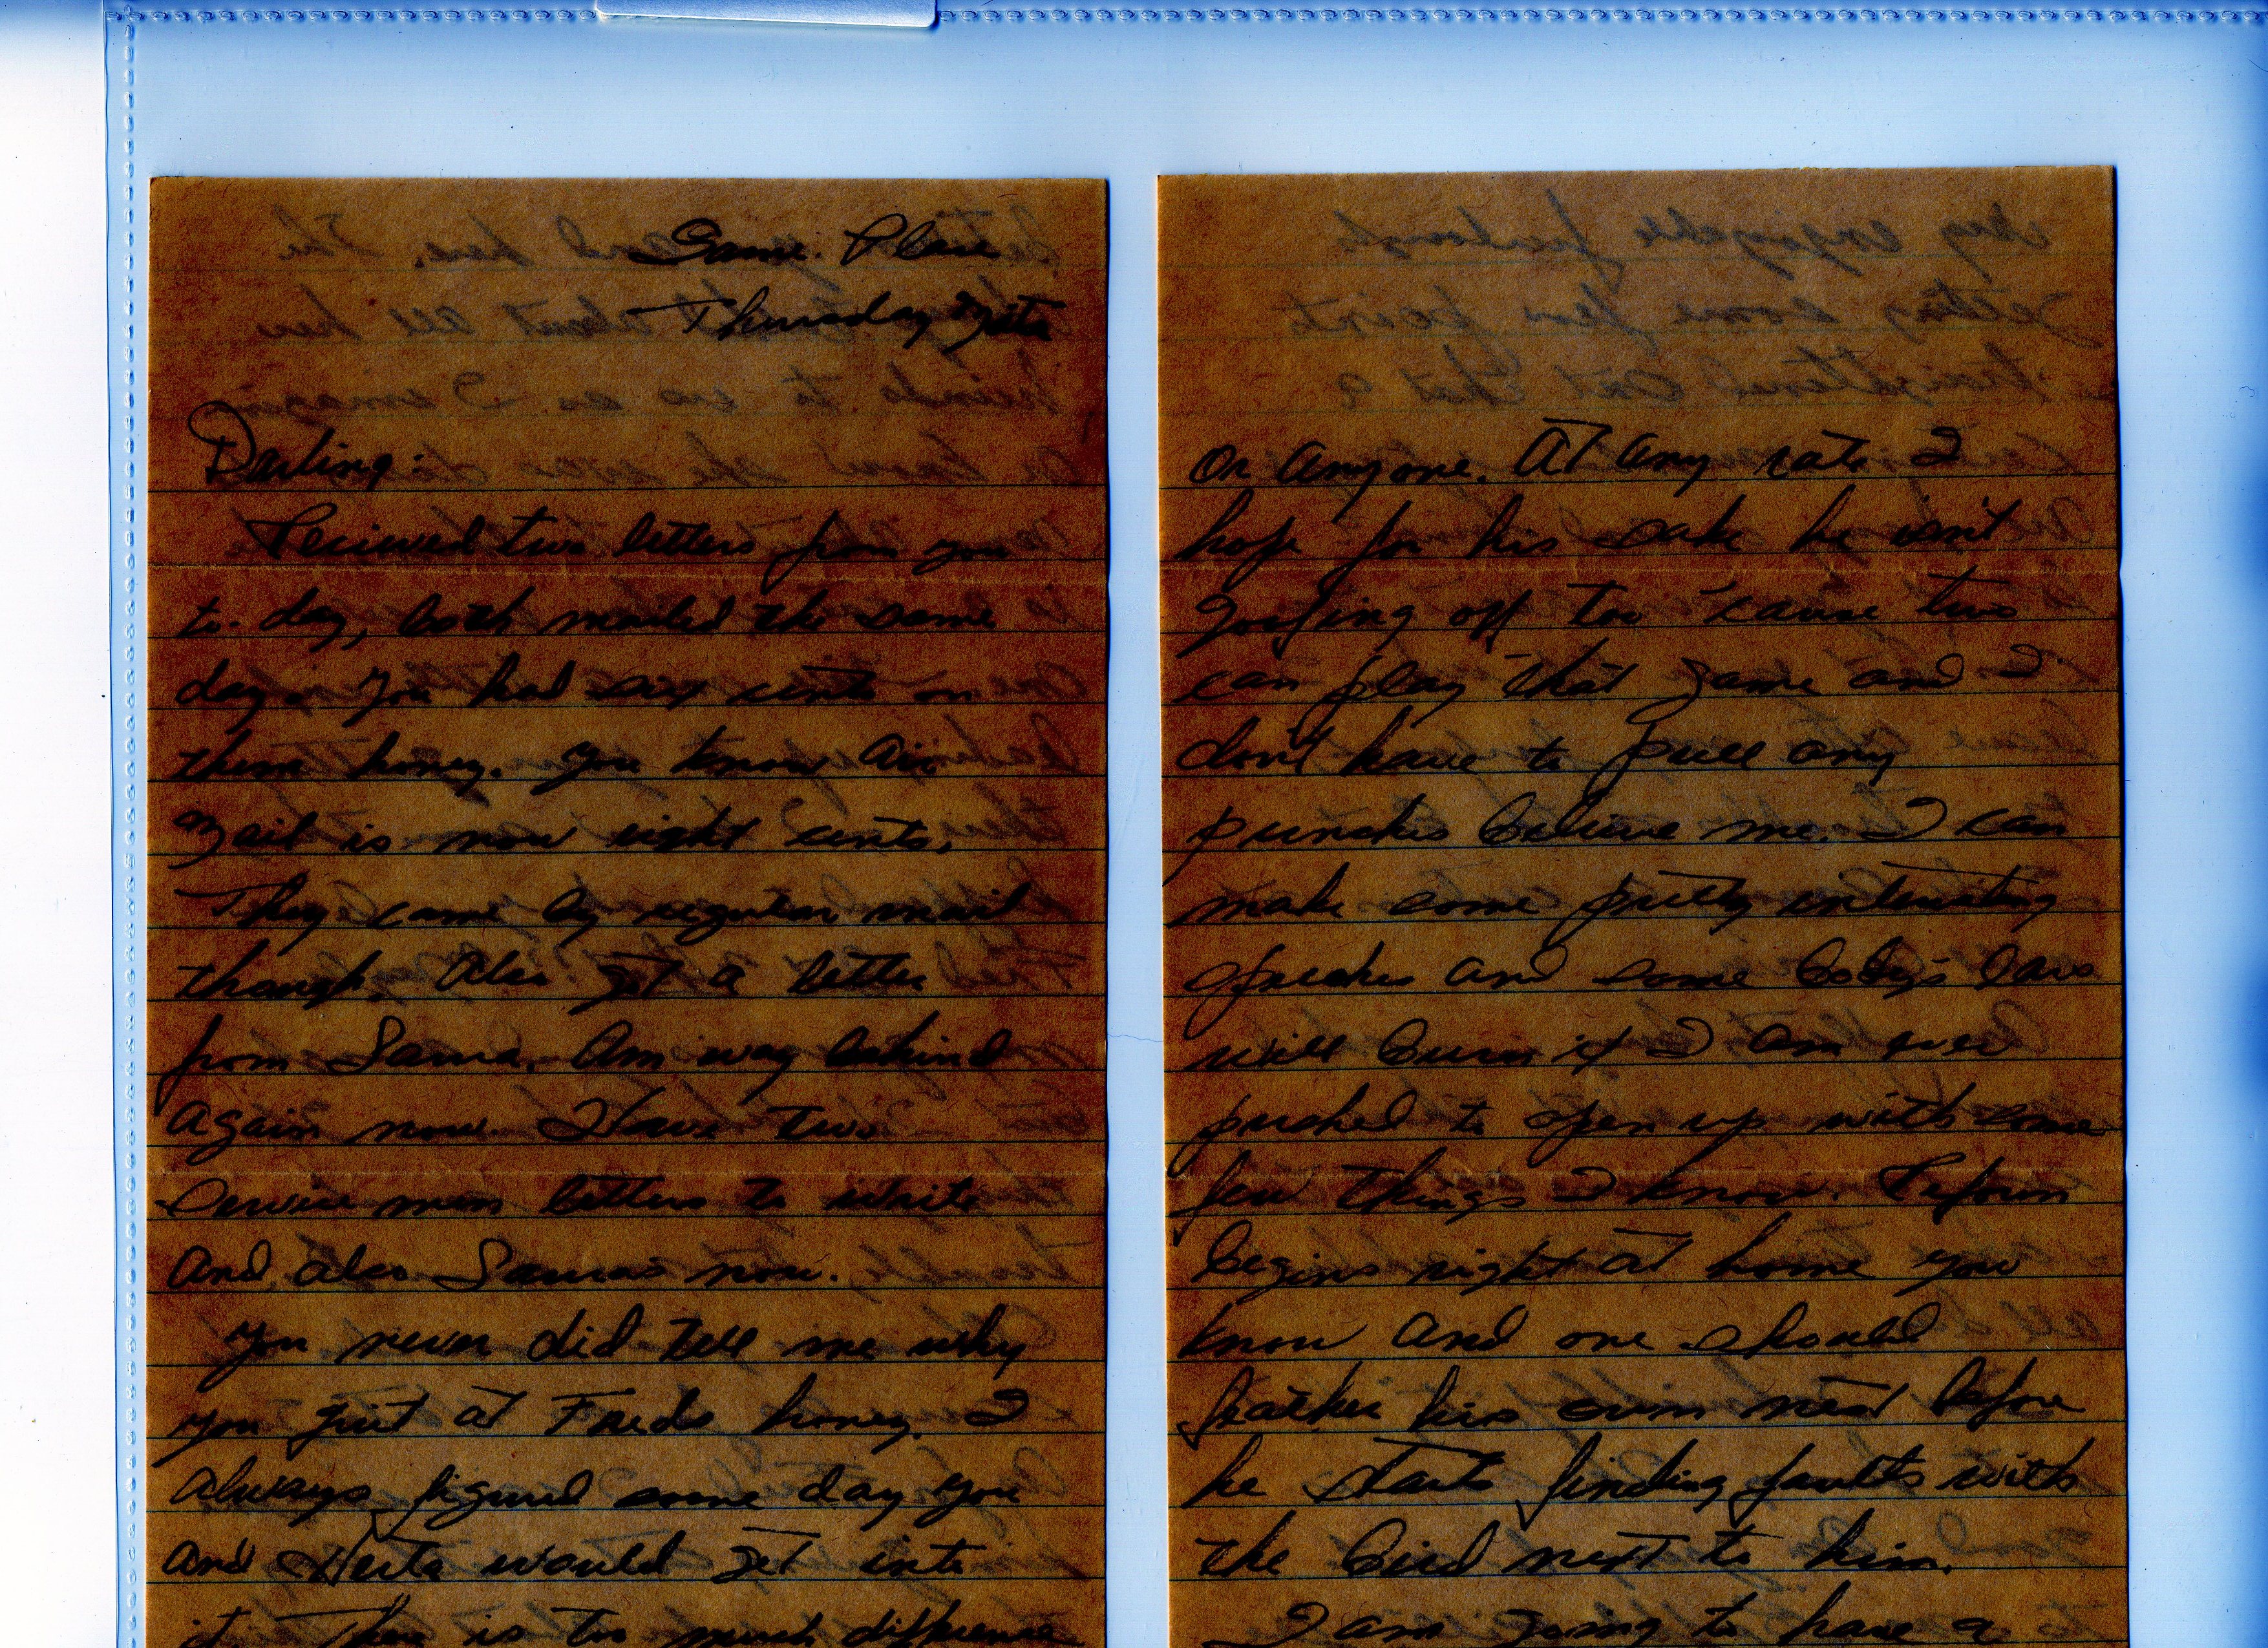 Same. Place
Thursday nite
Darling:
Recieved two letters from you
to-day, both mailed the same
day. You had six cents on
them honey. You know Air
Mail is now eight cents.
They came by regular mail
though. Also got a letter
from Laura. Am way behind
again now. Have two
Service mens letters to write
And also Laura's now.
You never did tell me why
you quit at Freds honey. I
always figured some day you
and Herta would get into
it. There is too much difference
or anyone. At any rate I
hope for his sake he isn't
goofing off too 'cause two
can play that game and I
don't have to pull any
punches believe me. I can
make some pretty interesting
speeches and some body's ears
will burn if I am ever
pushed to open up with some
few things I know. Reform
begins right at home you
know and one should
feather his own nest before
he starts finding faults with
the bird next to him.
I am going to have a